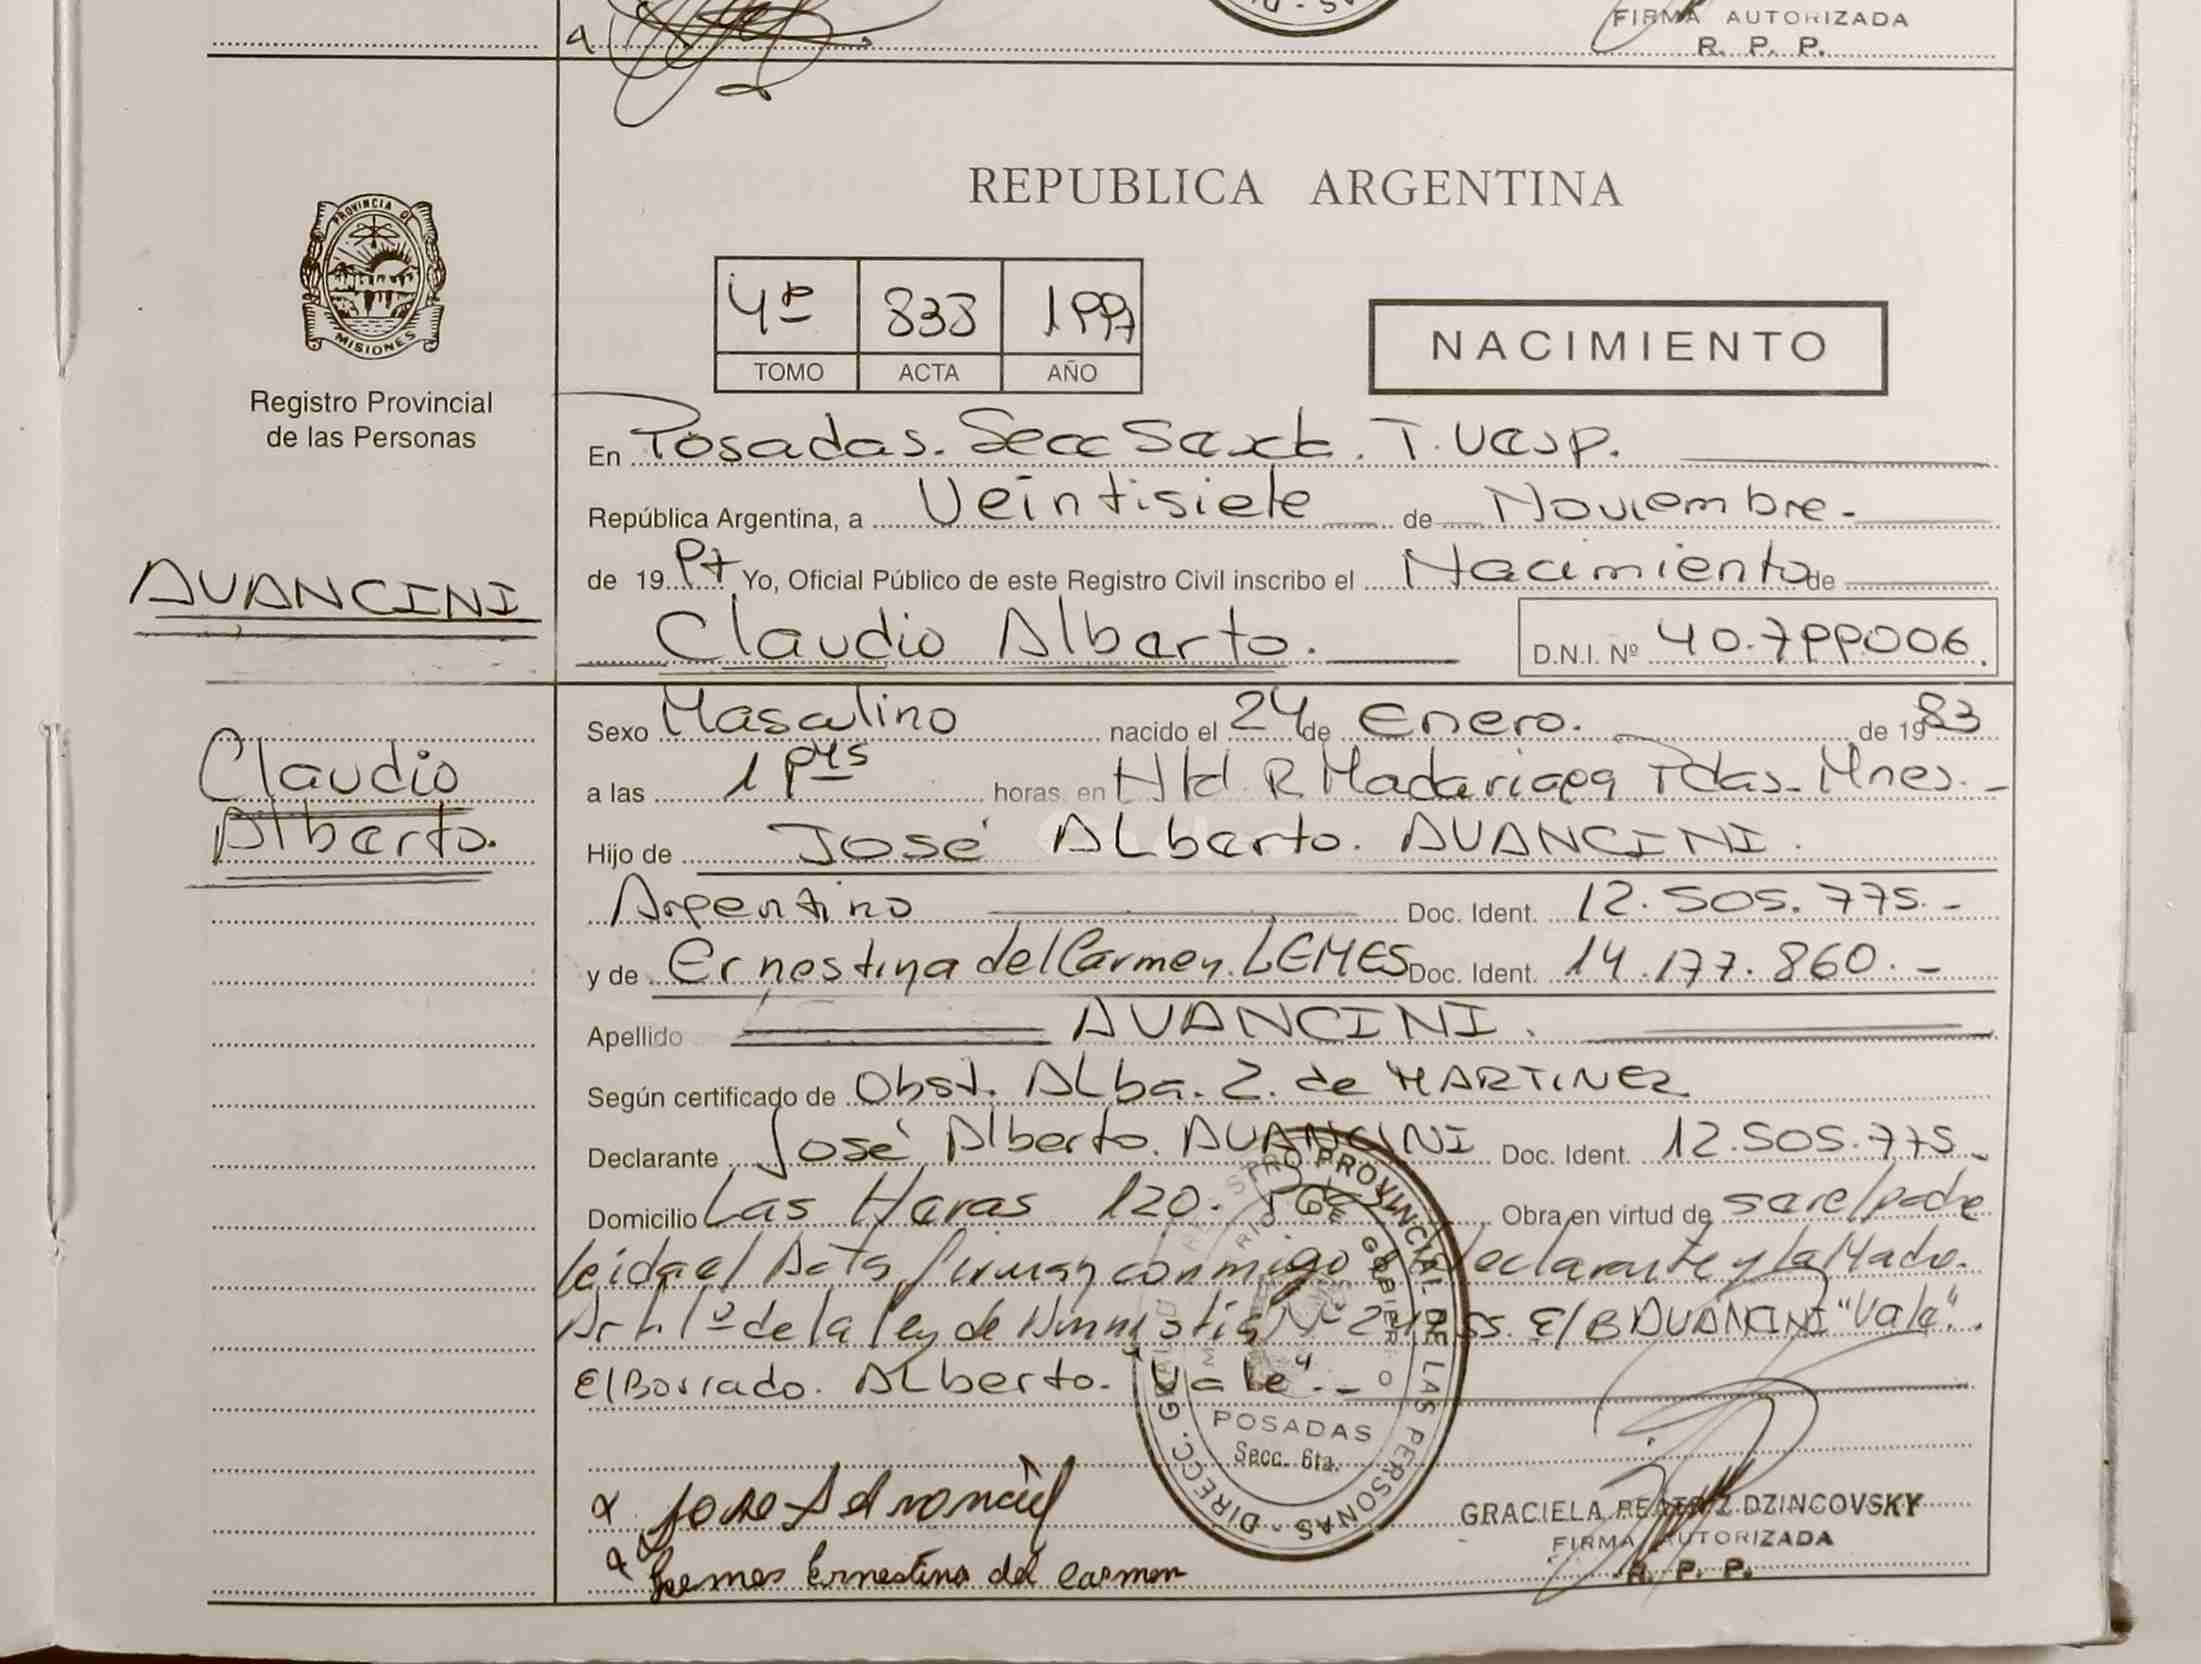 FIRMA AUTORIZADA
R. P. P.
PROVINCIA DE
MISIONES
Registro Provincial
de las Personas
REPUBLICA ARGENTINA
4º 833 1997
TOMO ACTA AÑO
NACIMIENTO
En Posadas. Secc Sexta. T. Vesp.
República Argentina, a Veintisiete de Noviembre.
de 1997 Yo, Oficial Público de este Registro Civil inscribo el Nacimiento de
AVANCINI
Claudio Alberto.
D.N.I. Nº 40.799.006
Claudio
Alberto.
Sexo Masculino nacido el 24 de Enero. de 1983
a las 19 horas, en Htal R Madariaga Pdas. Mnes.
Hijo de José ALberto. AVANCINI.
Argentino Doc. Ident. 12.505.775.
y de Ernestina del Carmen LEMES Doc. Ident. 14.177.860.
Apellido AVANCINI.
Según certificado de Obst. ALba. Z. de MARTINEZ
Declarante José Alberto. AVANCINI Doc. Ident. 12.505.775.
Domicilio Las Haras 120. Obra en virtud de ser el padre
leida el Acta firman conmigo declarante y la Madre.
Art. 1º de la ley de Amnistia Nº E/B AVANCINI "Vale".
El Borrado. ALberto. "Vale".
REGISTRO PROVINCIAL DE LAS PERSONAS - DIRECC. GRAL.
MINISTERIO DE GOBIERNO
POSADAS
Secc. 6ta.
Lemes Ernestina del Carmen
GRACIELA BEATRIZ DZINCOVSKY
FIRMA AUTORIZADA
R. P. P.